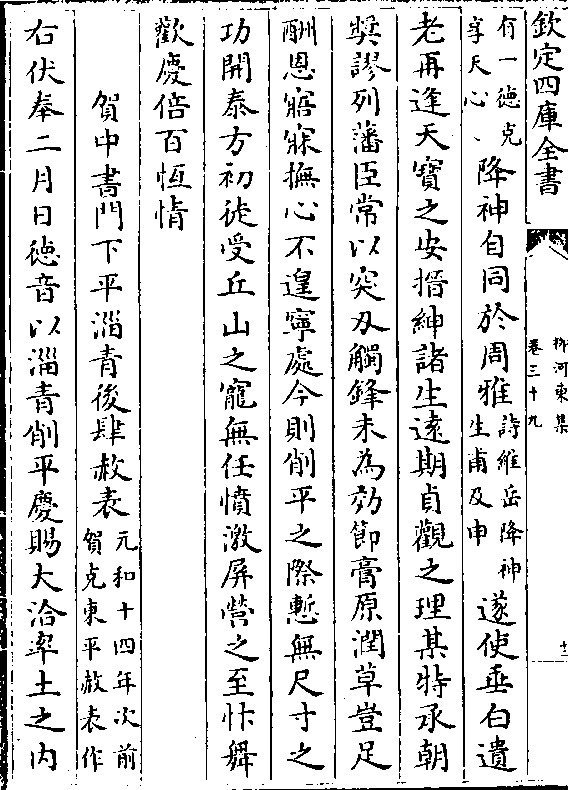 欽定四庫全書
柳河東集
卷三十九
十一
有一德克
享天心
降神自同於周雅
詩維岳降神
生甫及申
遂使垂白遺
老再逢天寶之安搢紳諸生遠期貞觀之理某特承朝
奬謬列藩臣常以突刃觸鋒未為効節膏原潤草豈足
酬恩寤寐撫心不遑寧處今則削平之際慙無尺寸之
功開泰方初徒受丘山之寵無任憤激屏營之至忭舞
歡慶倍百恆情
賀中書門下平淄青後肆赦表
元和十四年次前
賀克東平赦表作
右伏奉二月日德音以淄青削平慶賜大洽率土之内